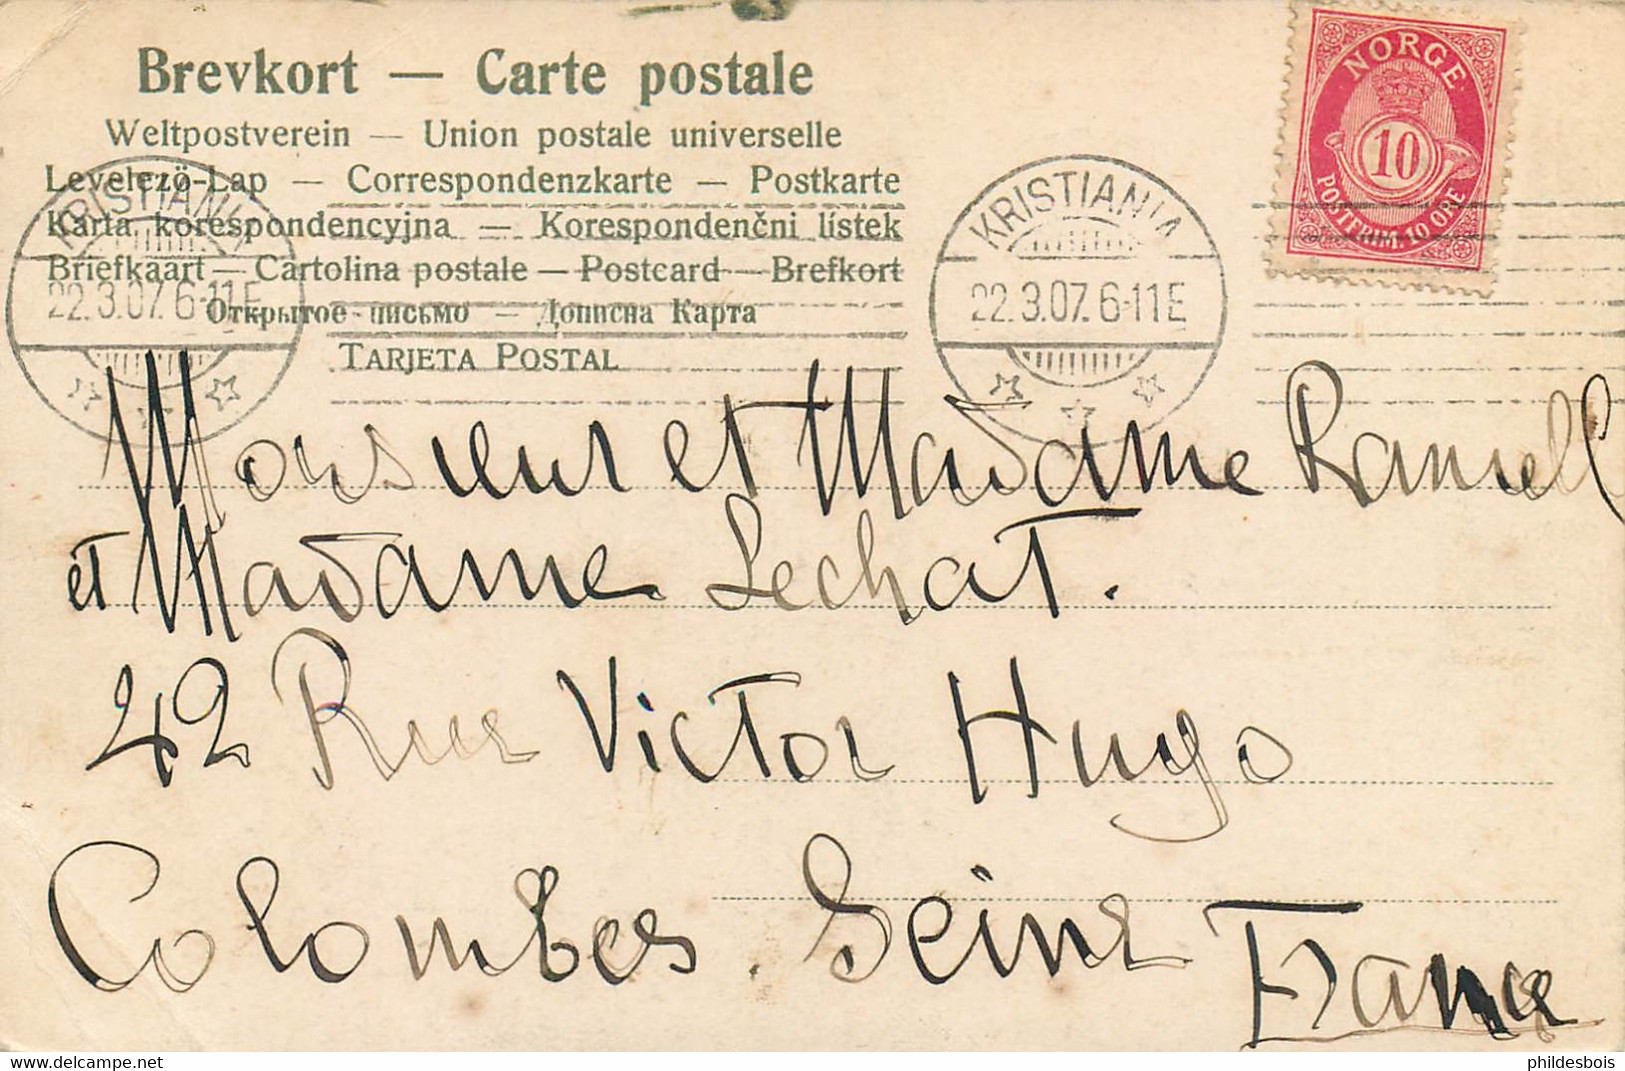 Brevkort — Carte postale
Weltpostverein — Union postale universelle
Levelező-Lap — Correspondenzkarte — Postkarte
Karta korespondencyjna — Korespondenční lístek
Briefkaart — Cartolina postale — Postcard — Brefkort
Открытое письмо — Дописна Карта
TARJETA POSTAL
KRISTIANIA
22.3.07. 6-11E
KRISTIANIA
22.3.07. 6-11E
NORGE
10
POSTFRIM. 10 ORE
Monsieur et Madame
et Madame Lechat.
42 Rue Victor Hugo
Colombes. Seine
France
phildesbois